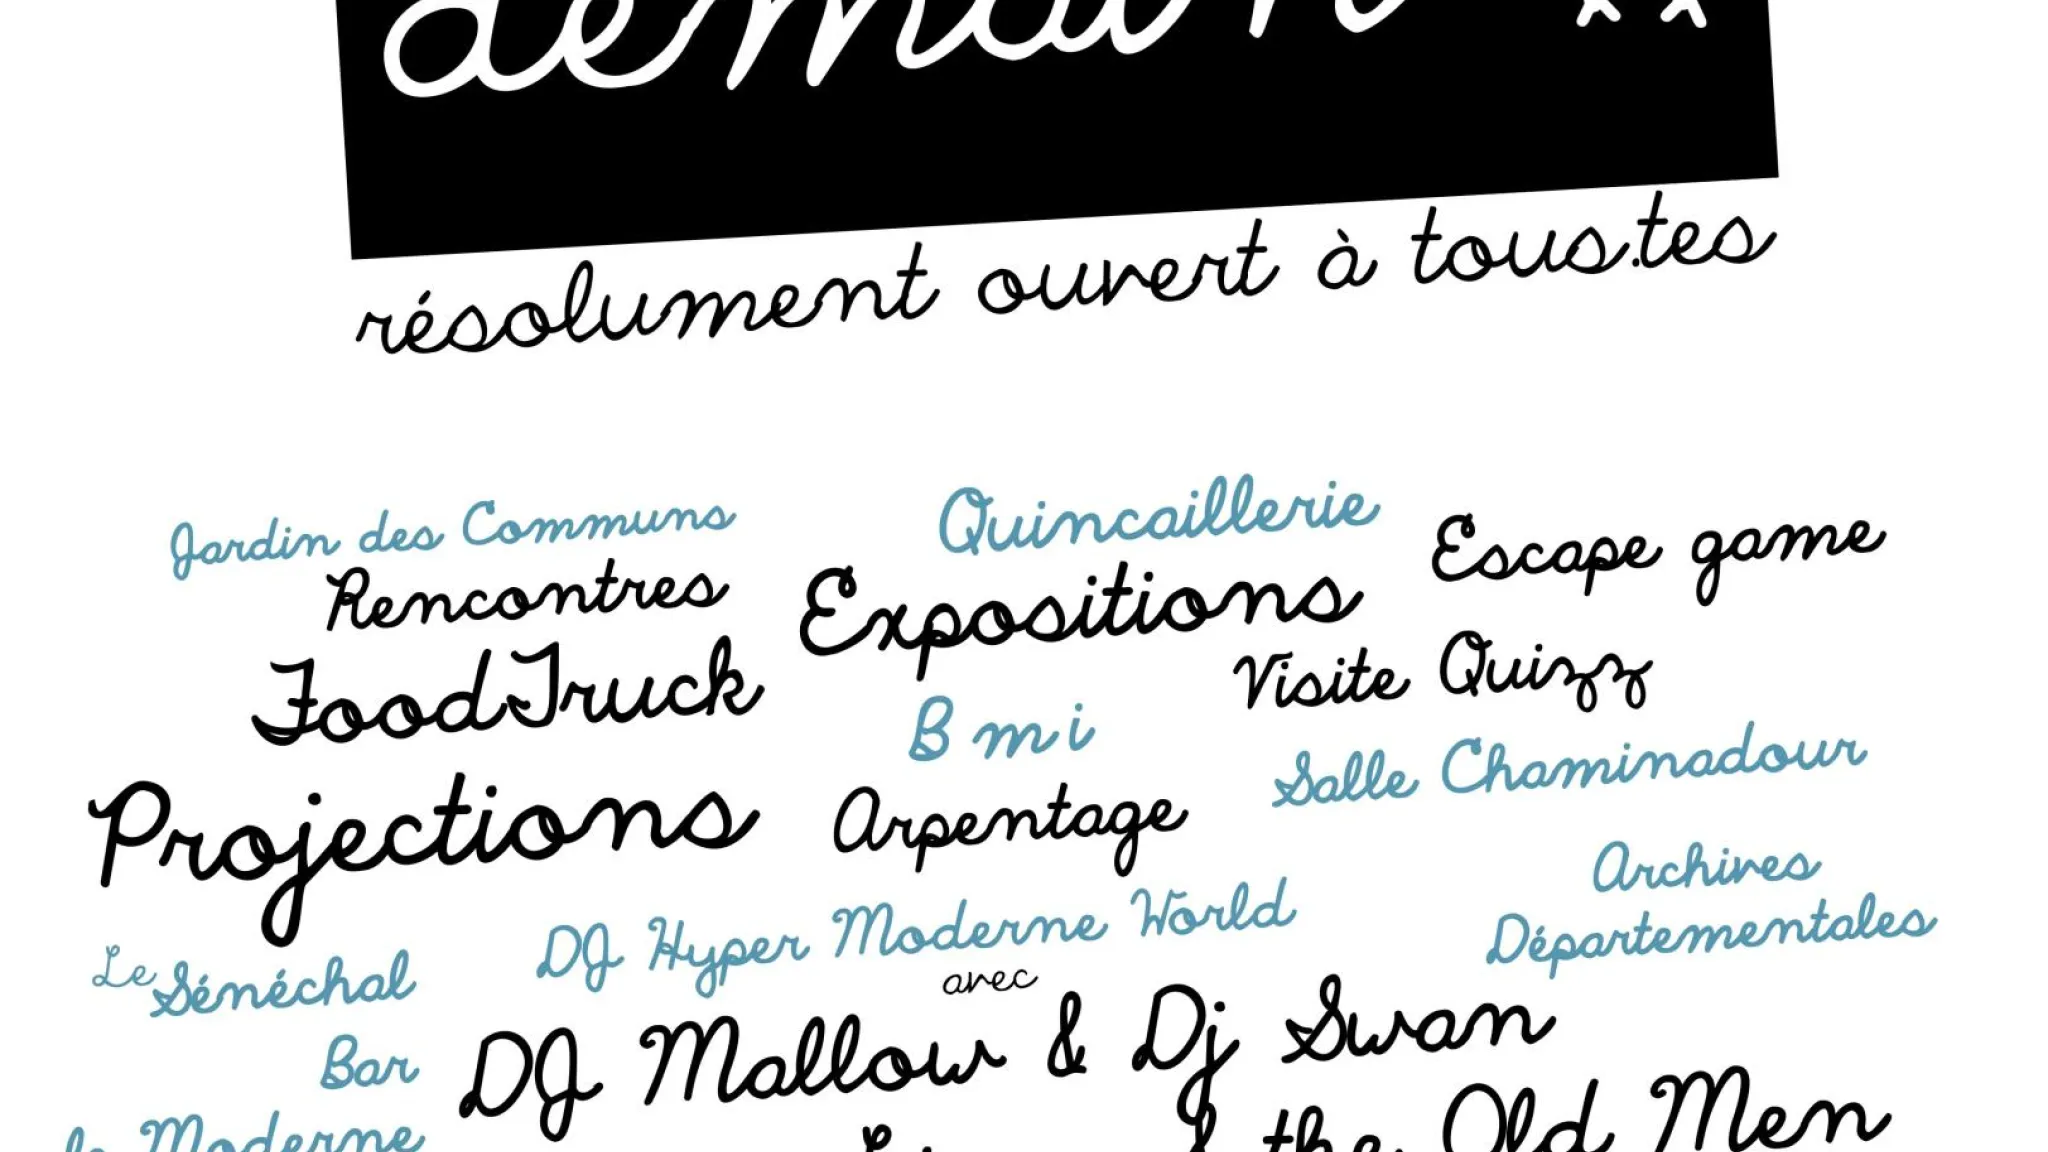 demain
résolument ouvert à tous.tes
Jardin des Communs
Quincaillerie
Rencontres
Expositions
Escape game
FoodTruck
Visite Quizz
B m i
Salle Chaminadour
Projections
Arpentage
Archives
Départementales
DJ Hyper Moderne World
Le Sénéchal
avec
DJ Mallow & Dj Swan
Bar
le Moderne
& the Old Men